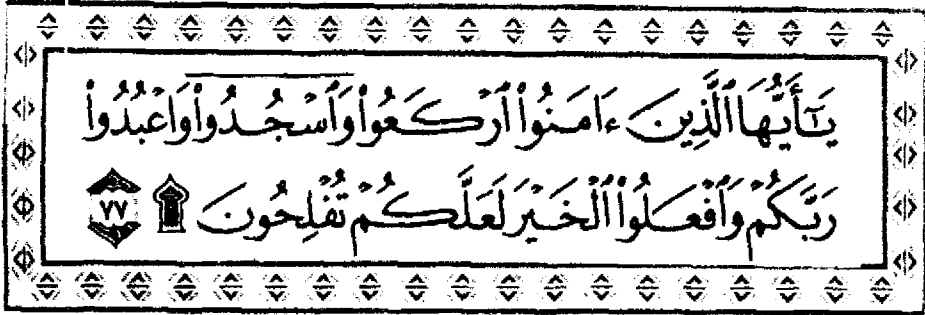 يَـٰٓأَيُّهَا ٱلَّذِينَ ءَامَنُوا۟ ٱرْكَعُوا۟ وَٱسْجُدُوا۟ وَٱعْبُدُوا۟
رَبَّكُمْ وَٱفْعَلُوا۟ ٱلْخَيْرَ لَعَلَّكُمْ تُفْلِحُونَ ۩ ٧٧